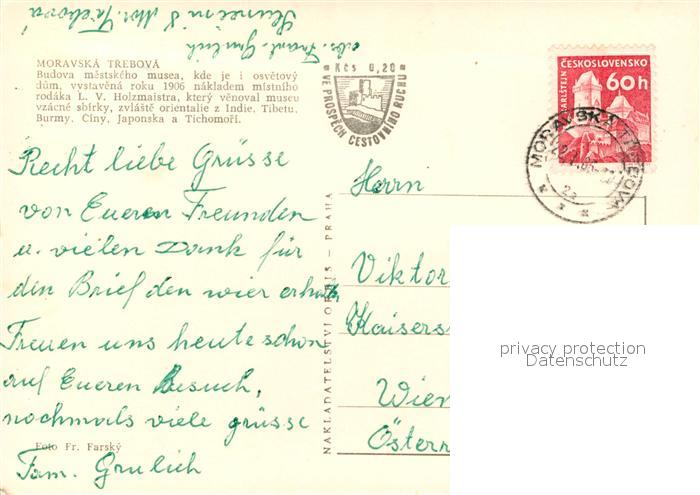 MORAVSKÁ TŘEBOVÁ
Budova městského musea, kde je i osvětový
dům, vystavěná roku 1906 nákladem místního
rodáka L. V. Holzmaistra, který věnoval museu
vzácné sbírky, zvláště orientalie z Indie, Tibetu,
Burmy, Číny, Japonska a Tichomoří.
Recht liebe Grüsse
von Eueren Freunden
u. vielen Dank für
den Brief den wier
Freuen uns heute schon
auf Eueren Besuch,
nochmals viele grüsse
Foto Fr. Farský
Fam. Grulich
abs. Frant. Grulich
8 Mor. Třebová
NAKLADATELSTVÍ ORBIS - PRAHA
Kčs 0,20
VE PROSPĚCH CESTOVNÍHO RUCHU
ČESKOSLOVENSKO
KARLŠTEJN
60h
MORAVSKÁ TŘEBOVÁ
Herrn
Viktor
Kaisers
Wien
Österr
privacy protection
Datenschutz